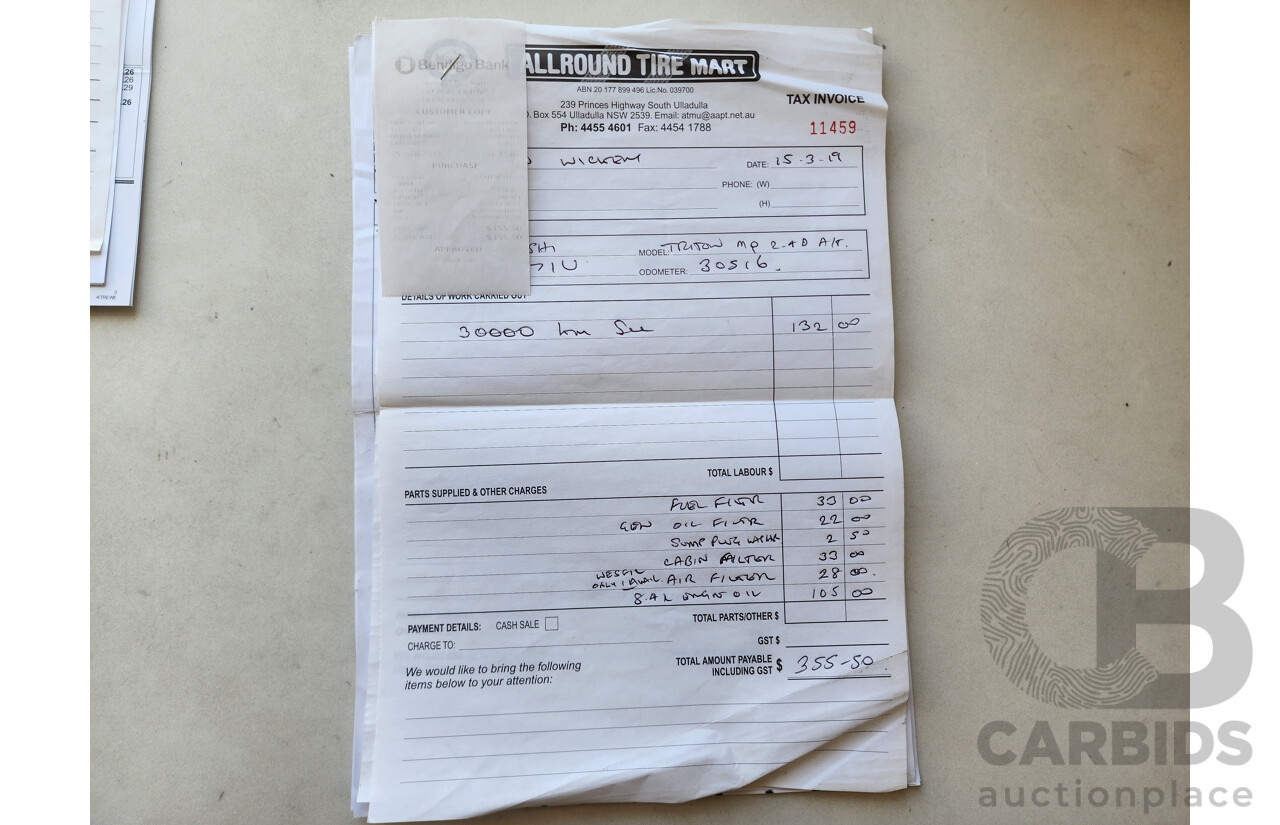 Bendigo Bank
ALLROUND TIRE MART
ABN 20 177 899 496 Lic.No. 039700
TAX INVOICE
239 Princes Highway South Ulladulla
. Box 554 Ulladulla NSW 2539. Email: atmu@aapt.net.au
Ph: 4455 4601 Fax: 4454 1788
11459
CUSTOMER COPY
PURCHASE
APPROVED
DATE: 15-3-19
PHONE: (W)
(H)
SHI
MODEL: TRITON MQ 2.4D A/T.
71U
ODOMETER: 30516.
DETAILS OF WORK CARRIED OUT
30000 km 132 00
TOTAL LABOUR $
PARTS SUPPLIED & OTHER CHARGES
FUEL FILTR 33 00
GEN OIL FILTR 22 00
SUMP PLUG WASHR 2 50
CABIN FILTER 33 00
WESFIL
ONLY 1 AVAIL. AIR FILTER 28 00.
8.4L ENGINE OIL 105 00
PAYMENT DETAILS: CASH SALE
TOTAL PARTS/OTHER $
CHARGE TO:
GST $
We would like to bring the following
items below to your attention:
TOTAL AMOUNT PAYABLE
INCLUDING GST $ 355-50.
26
26
29
26
CARBIDS
auctionplace